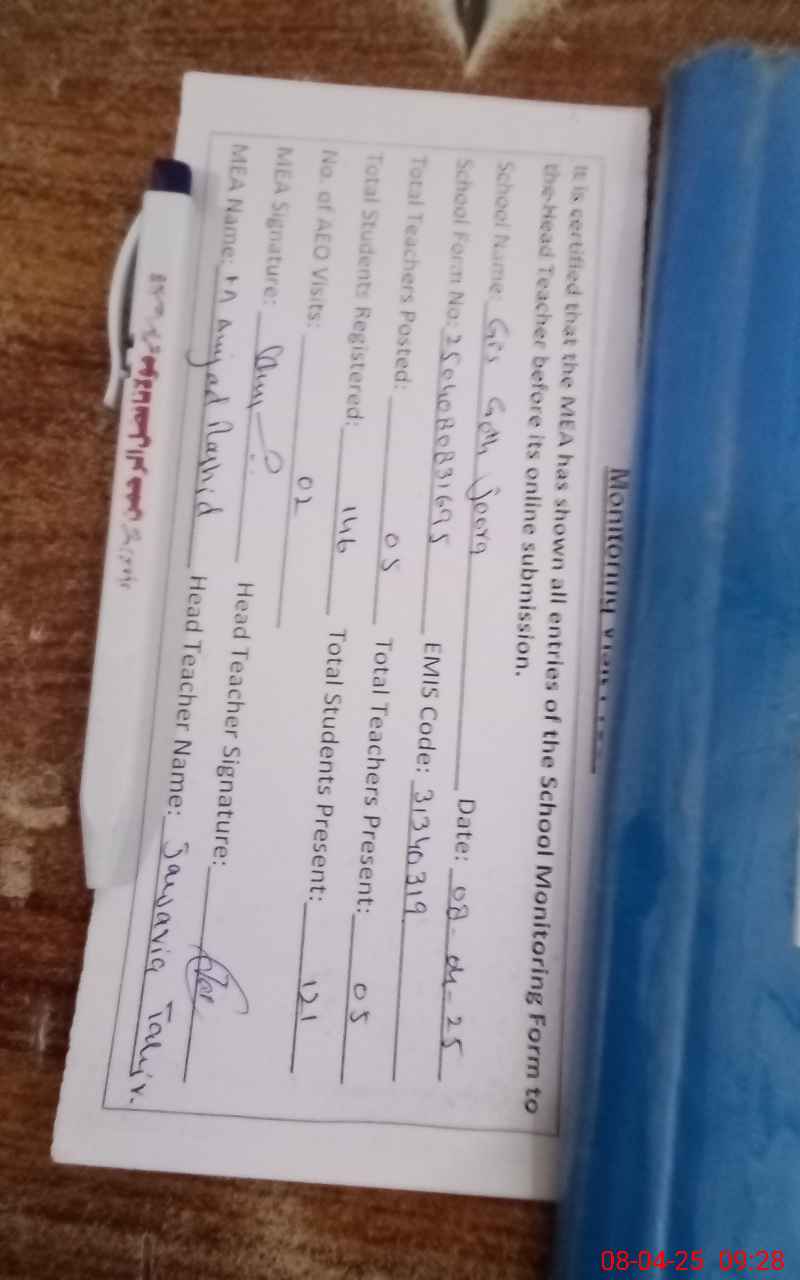 Monitoring Visit
It is certified that the MEA has shown all entries of the School Monitoring Form to
the Head Teacher before its online submission.
School Name: GPS Goth Date: 08-04-25
School Form No: 2504080831695 EMIS Code: 31340319
Total Teachers Posted: 05 Total Teachers Present: 05
Total Students Registered: 146 Total Students Present: 121
No. of AEO Visits: 02
MEA Signature: Head Teacher Signature:
MEA Name: M Amjad Rashid Head Teacher Name: Jawaria Tahir.
08-04-25 09:28